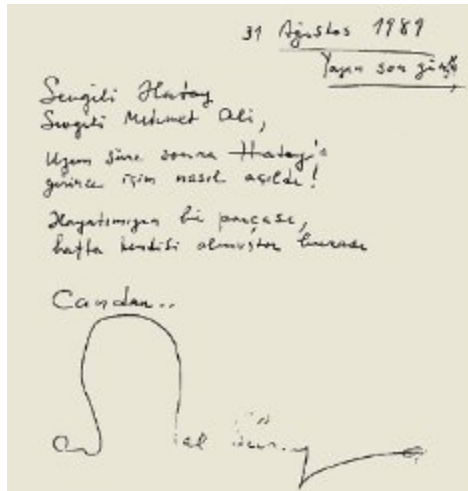 31 Ağustos 1989
Yazın son günü,
Sevgili Hatay
Sevgili Mehmet Ali,
Uzun süre sonra Hatay'a
girince içim nasıl açıldı!
Hayatımızın bir parçası,
hatta kendisi olmuştur burası
Candan..